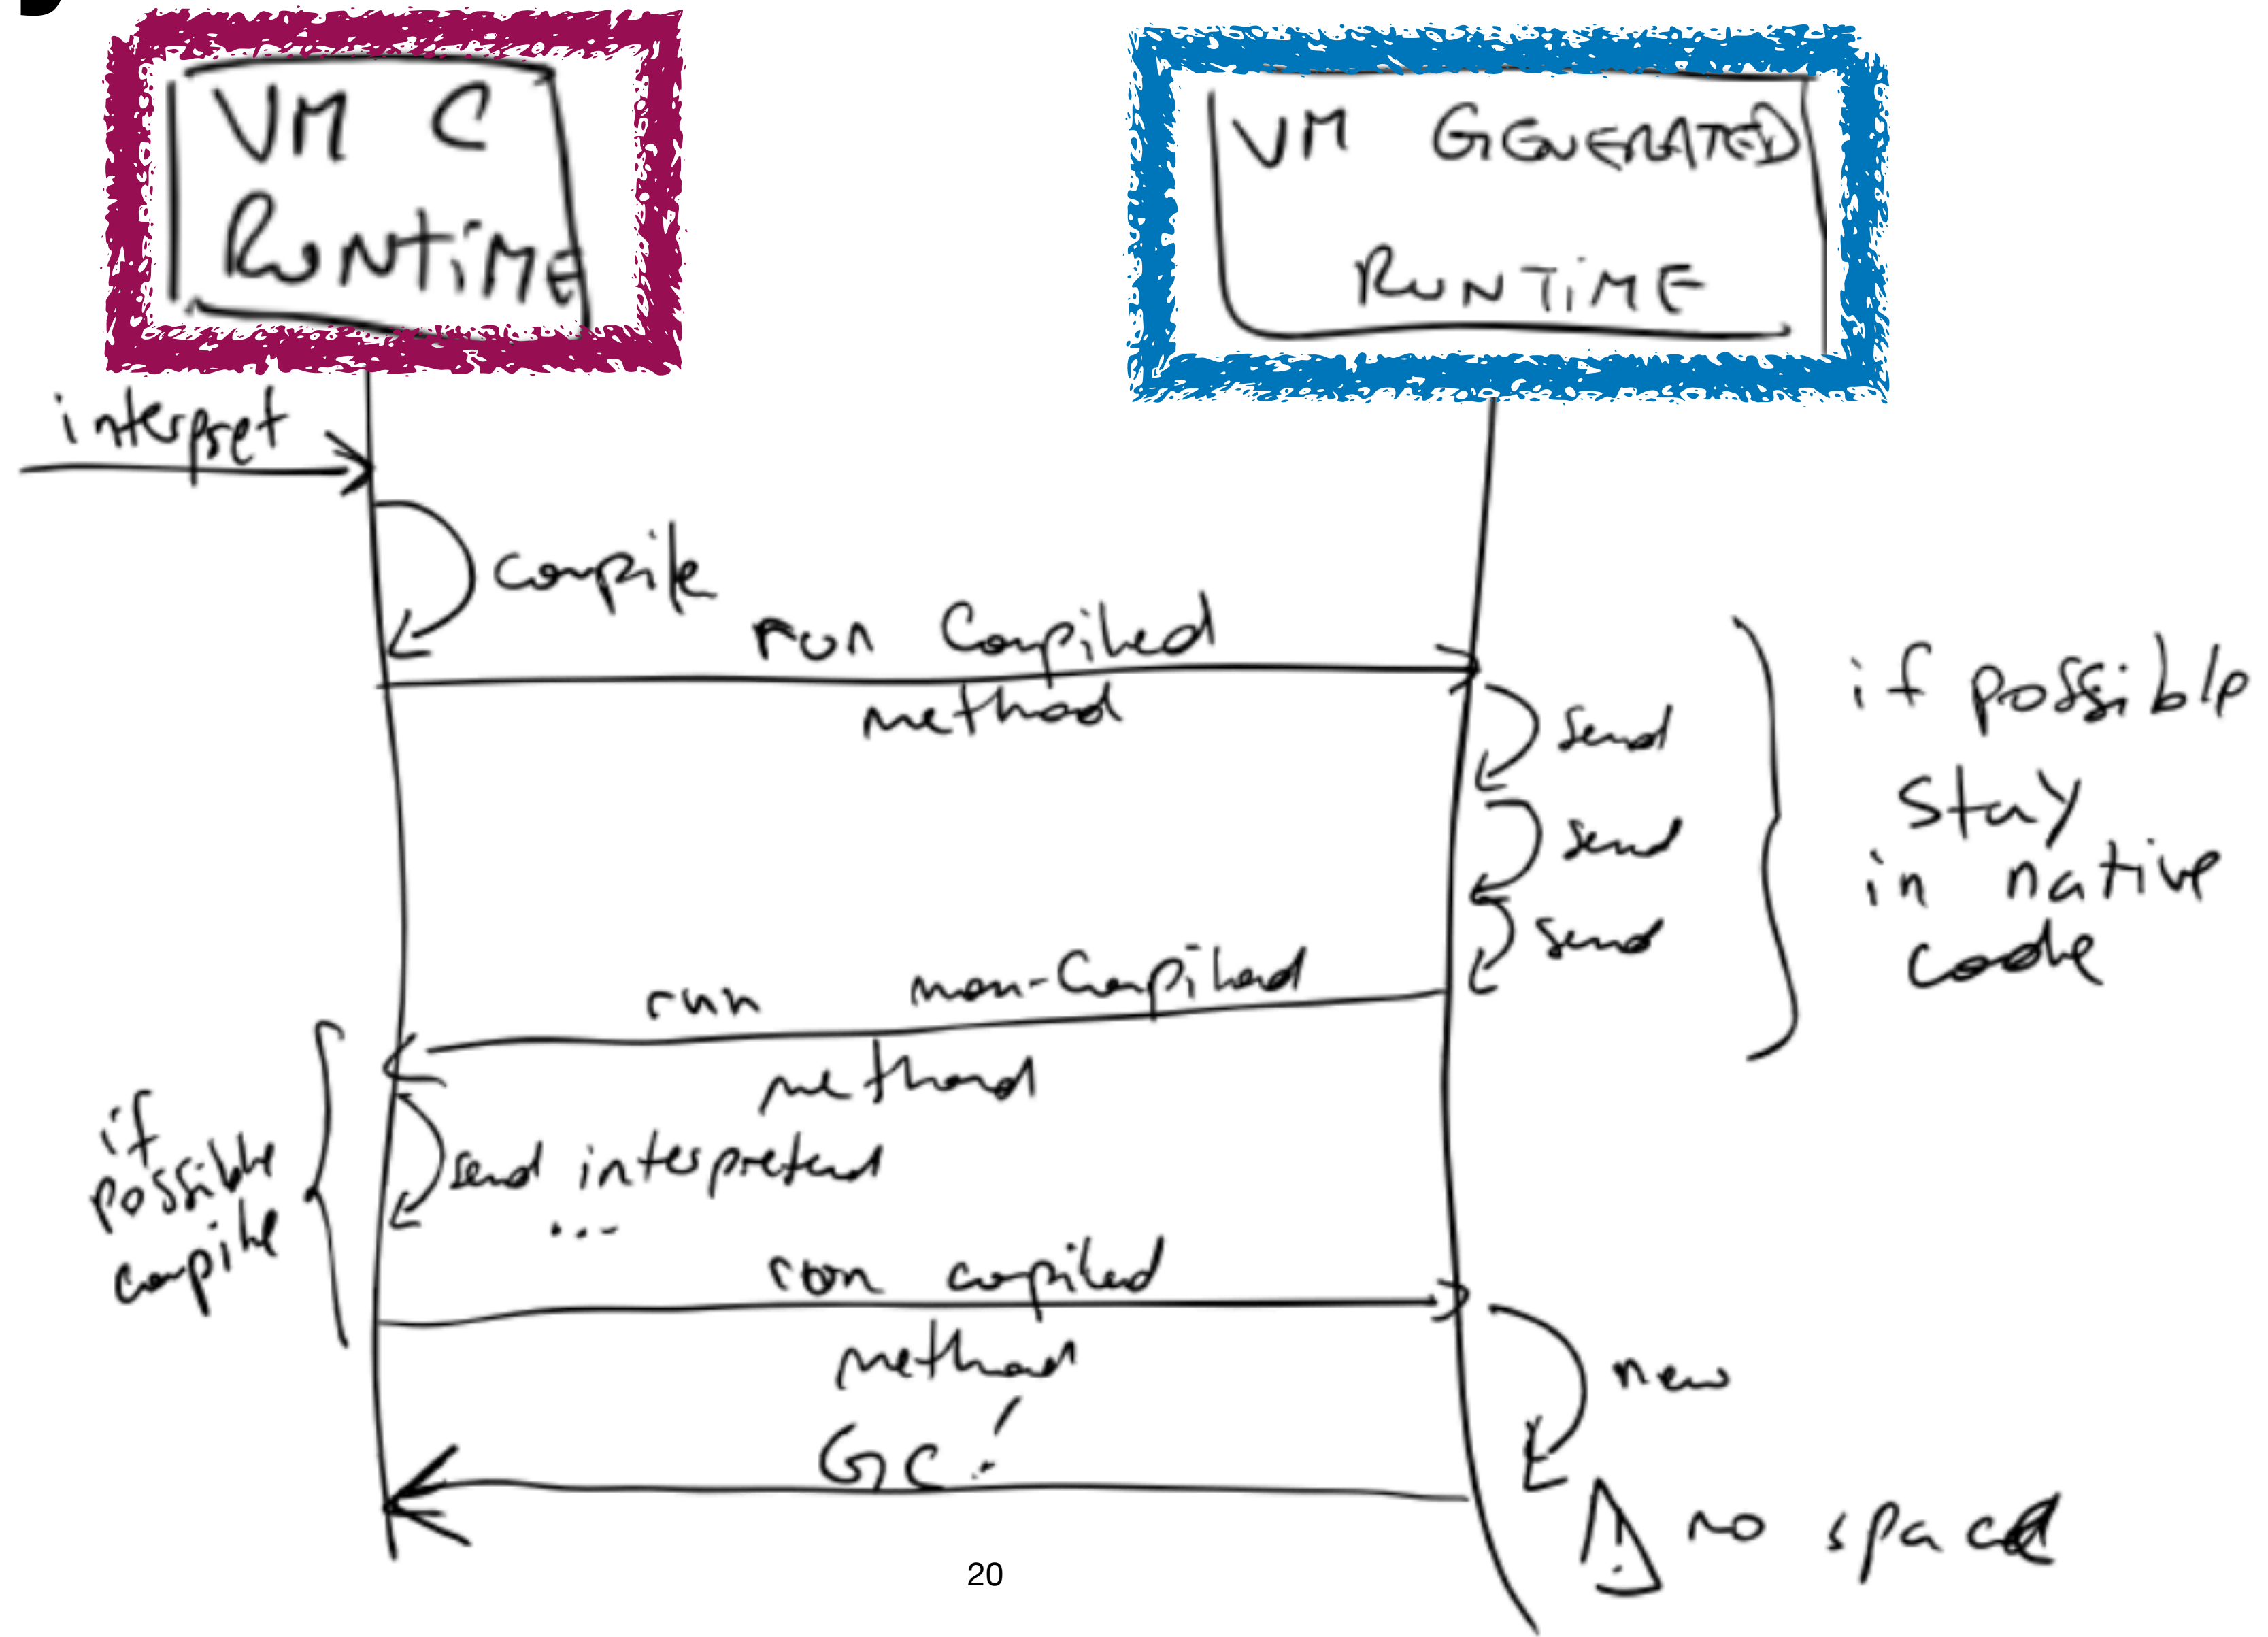 VM C
RUNTiME
VM GENERATED
RUNTiME
interpret
compile
run Compiled
method
send
send
send
if possible
stay
in native
code
run non-Compiled
method
if
possible
compile
send interpreted
...
run compiled
method
new
GC!
! no space
20